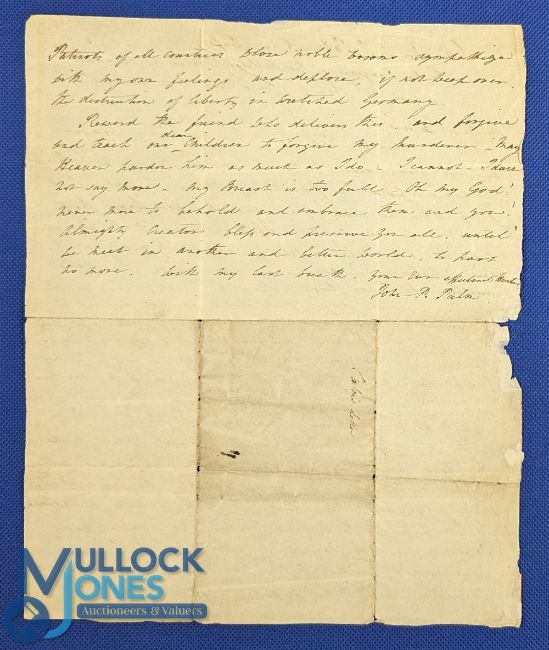 Patriots of all countries whose noble bosoms sympathize
with my own feelings and deplore, if not weep over
the destruction of liberty in wretched Germany
Reward the friend who delivers this and forgive
dear
and teach our Children to forgive my murderer - May
Heaven pardon him as much as I do - I cannot - I dare
not say more - my Breast is too full - Oh my God!
never more to behold and embrace them and you!
Almighty Creator bless and preserve you all, until
we meet in another and better world, to part
no more. With my last breath, your ever affectionate Husband
John P. Palm
Palm's Letter
MULLOCK
JONES
Auctioneers & Valuers